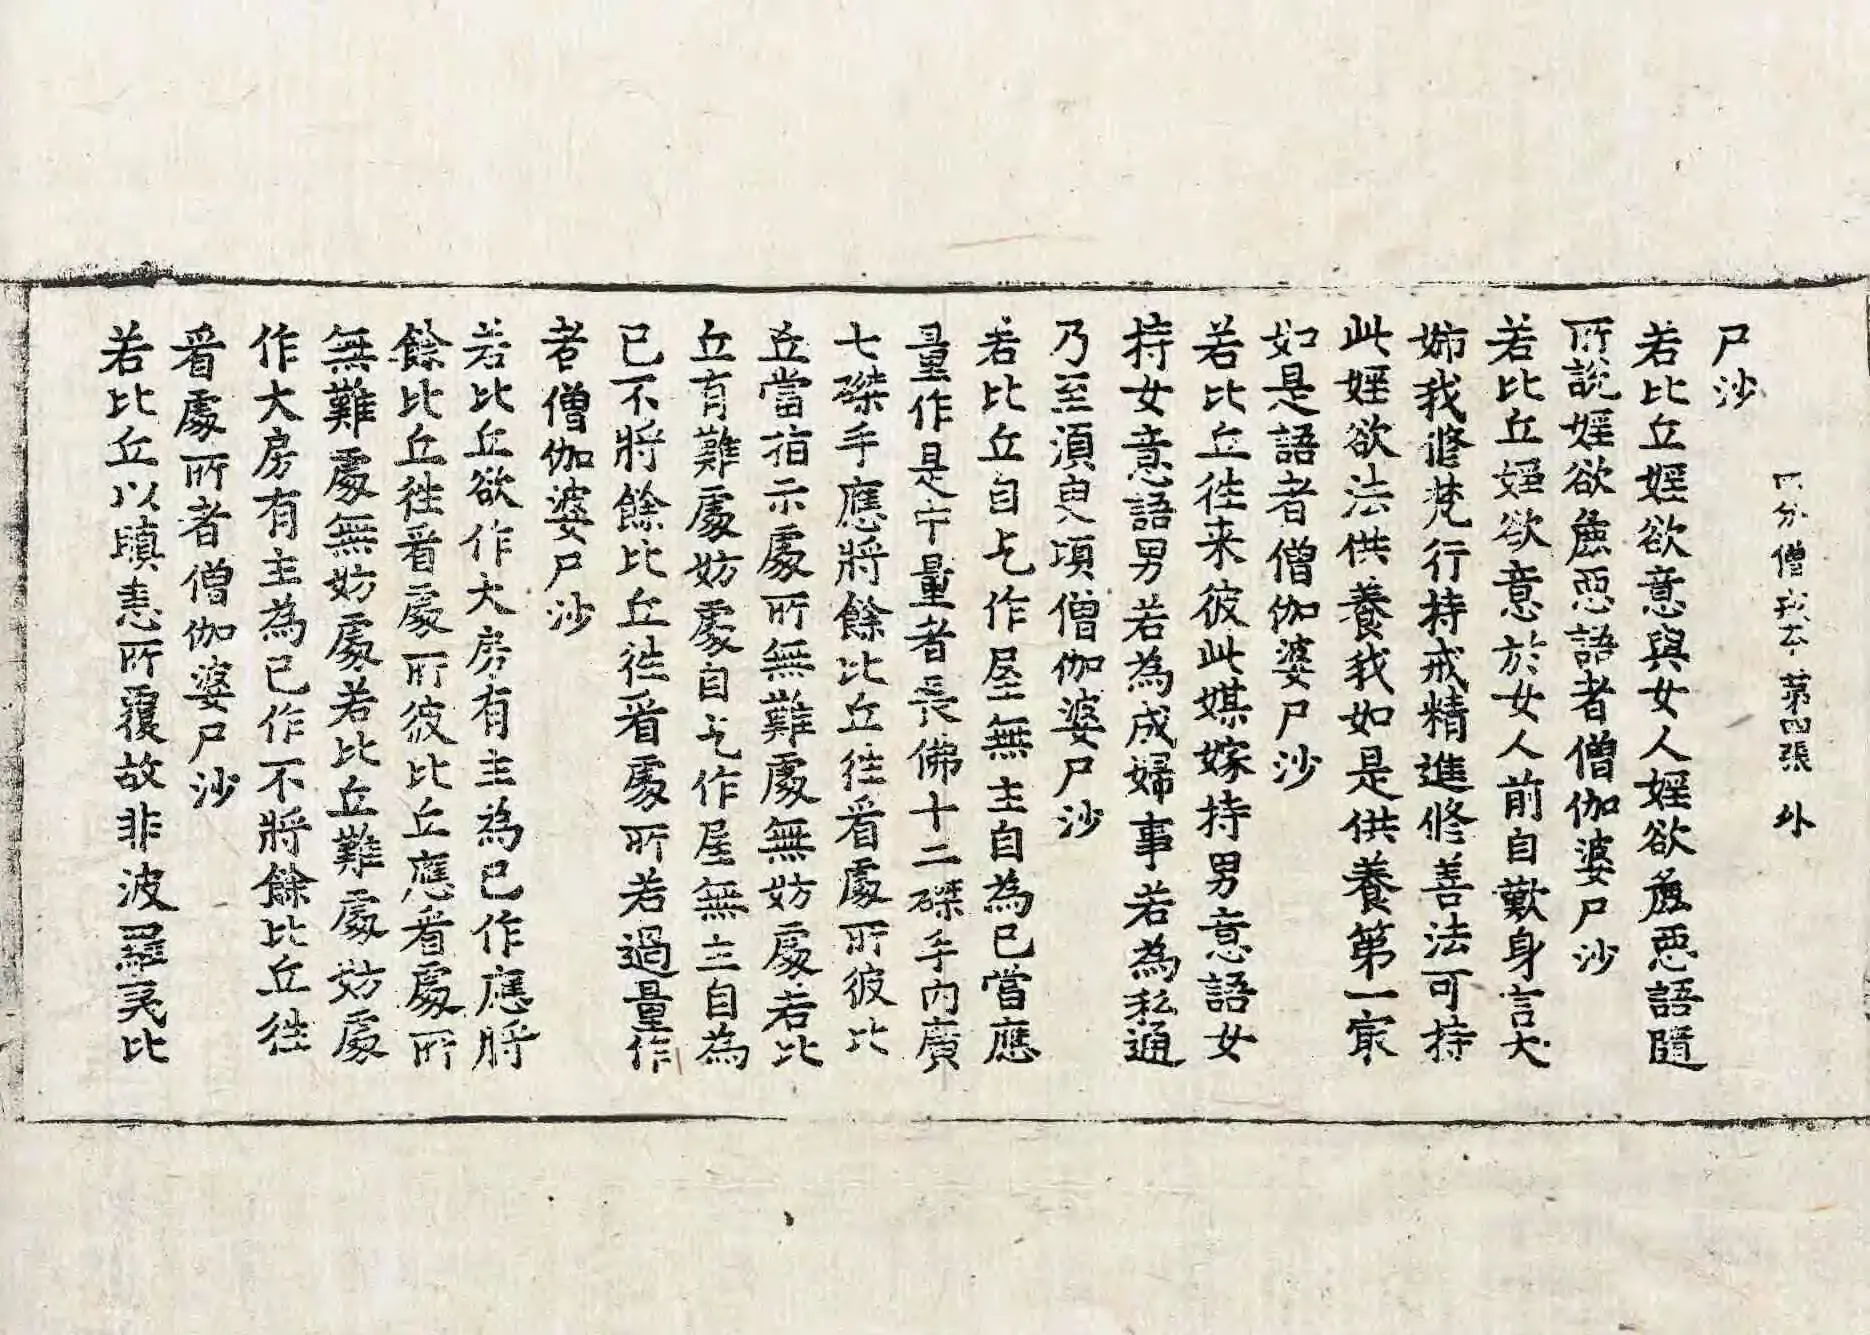 尸沙
四分僧戒本 第四張 外
若比丘婬欲意與女人婬欲麁惡語隨
所說婬欲麁惡語者僧伽婆尸沙
若比丘婬欲意於女人前自歎身言大
姊我修梵行持戒精進修善法可持
此婬欲法供養我如是供養第一㝡
如是語者僧伽婆尸沙
若比丘往来彼此媒嫁持男意語女
持女意語男若為成婦事若為私通
乃至湏臾頃僧伽婆尸沙
若比丘自乞作屋無主自為已當應
量作是中量者長佛十二磔手內廣
七磔手應將餘比丘往看處所彼比
丘當指示處所無難處無妨處若比
丘有難處妨處自乞作屋無主自為
已不將餘比丘往看處所若過量作
者僧伽婆尸沙
若比丘欲作大房有主為已作應將
餘比丘往看處所彼比丘應看處所
無難處無妨處若比丘難處妨處
作大房有主為已作不將餘比丘往
看處所者僧伽婆尸沙
若比丘以瞋恚所覆故非波羅夷比